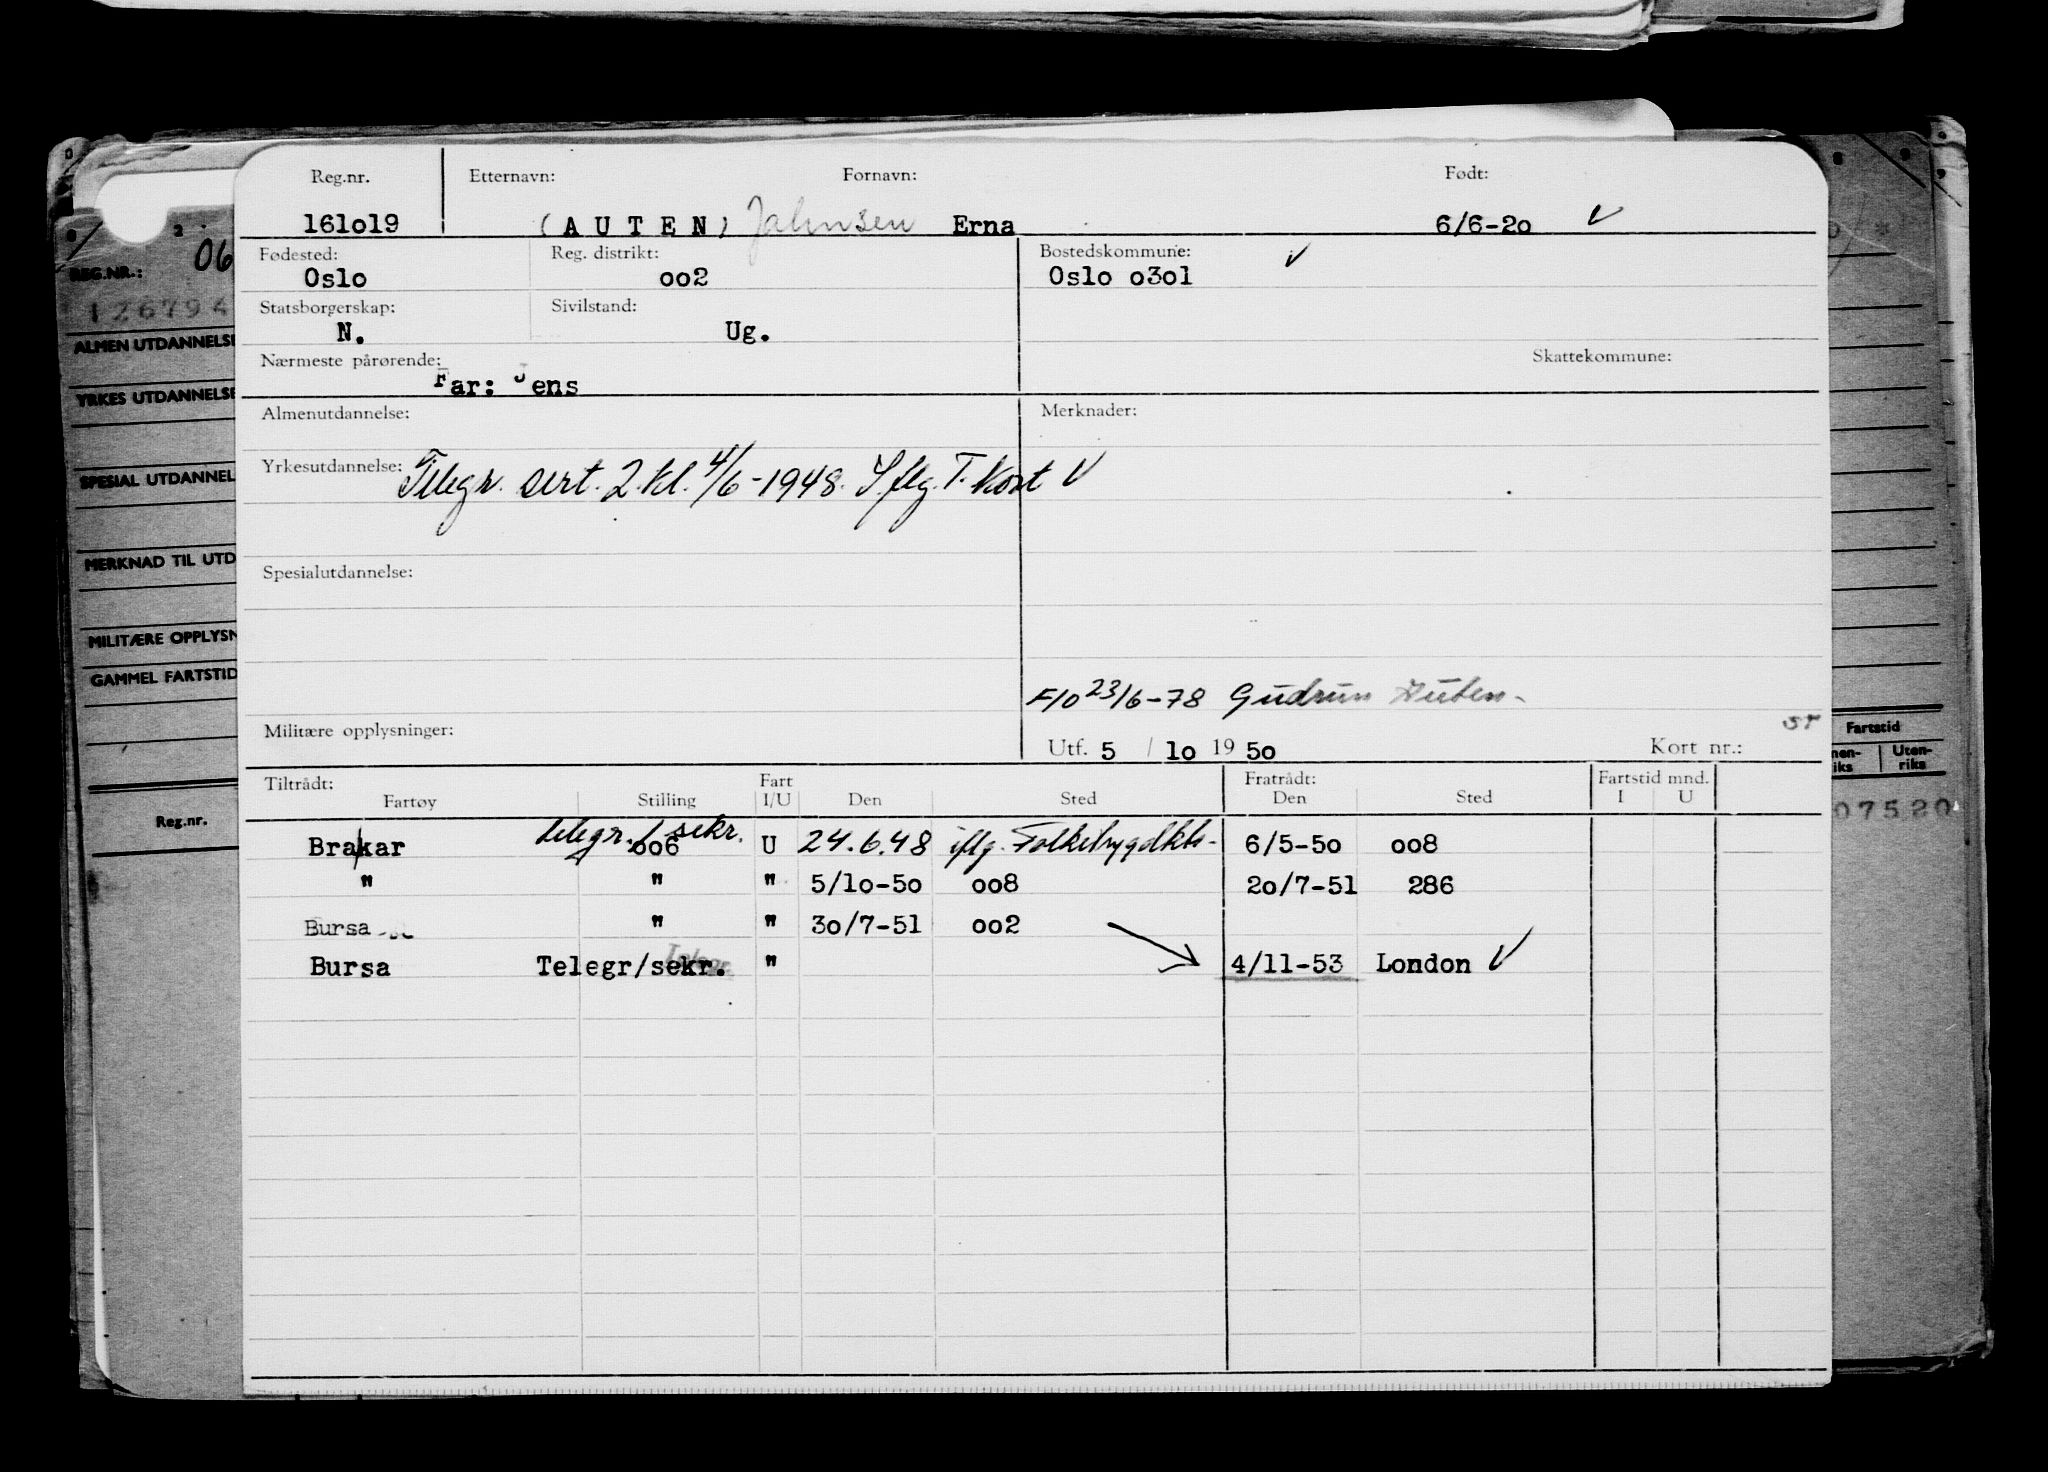 Reg.nr. Etternavn: Fornavn: Født:
161o19 (AUTEN) Jahnsen Erna 6/6-2o
Fødested: Reg. distrikt: Bostedskommune:
Oslo oo2 Oslo o3o1
Statsborgerskap: Sivilstand:
N. Ug.
Nærmeste pårørende: Skattekommune:
Far: Jens
Almenutdannelse: Merknader:
Yrkesutdannelse: Telegr. sert. 2. kl. 4/6-1948. I flg. T. Kort
Spesialutdannelse:
F/O 23/6-78 Gudrun Auten
Militære opplysninger:
Utf. 5 / 1o 19 5o Kort nr.:
Tiltrådt: Fart Fratrådt: Fartstid mnd.
Fartøy Stilling I/U Den Sted Den Sted I U
Brakar telegr./sekr. oo6 U 24.6.48 iflg. 6/5-5o oo8
" " " 5/1o-5o oo8 2o/7-51 286
Bursa " " 3o/7-51 oo2
Bursa Telegr/sekr. " 4/11-53 London
06
REG.NR.:
126794
ALMEN UTDANNELSE
YRKES UTDANNELSE
SPESIAL UTDANNEL
MERKNAD TIL UTD
MILITÆRE OPPLYSN
GAMMEL FARTSTID
Reg.nr.
Fartstid
nen-riks Uten-riks
07520